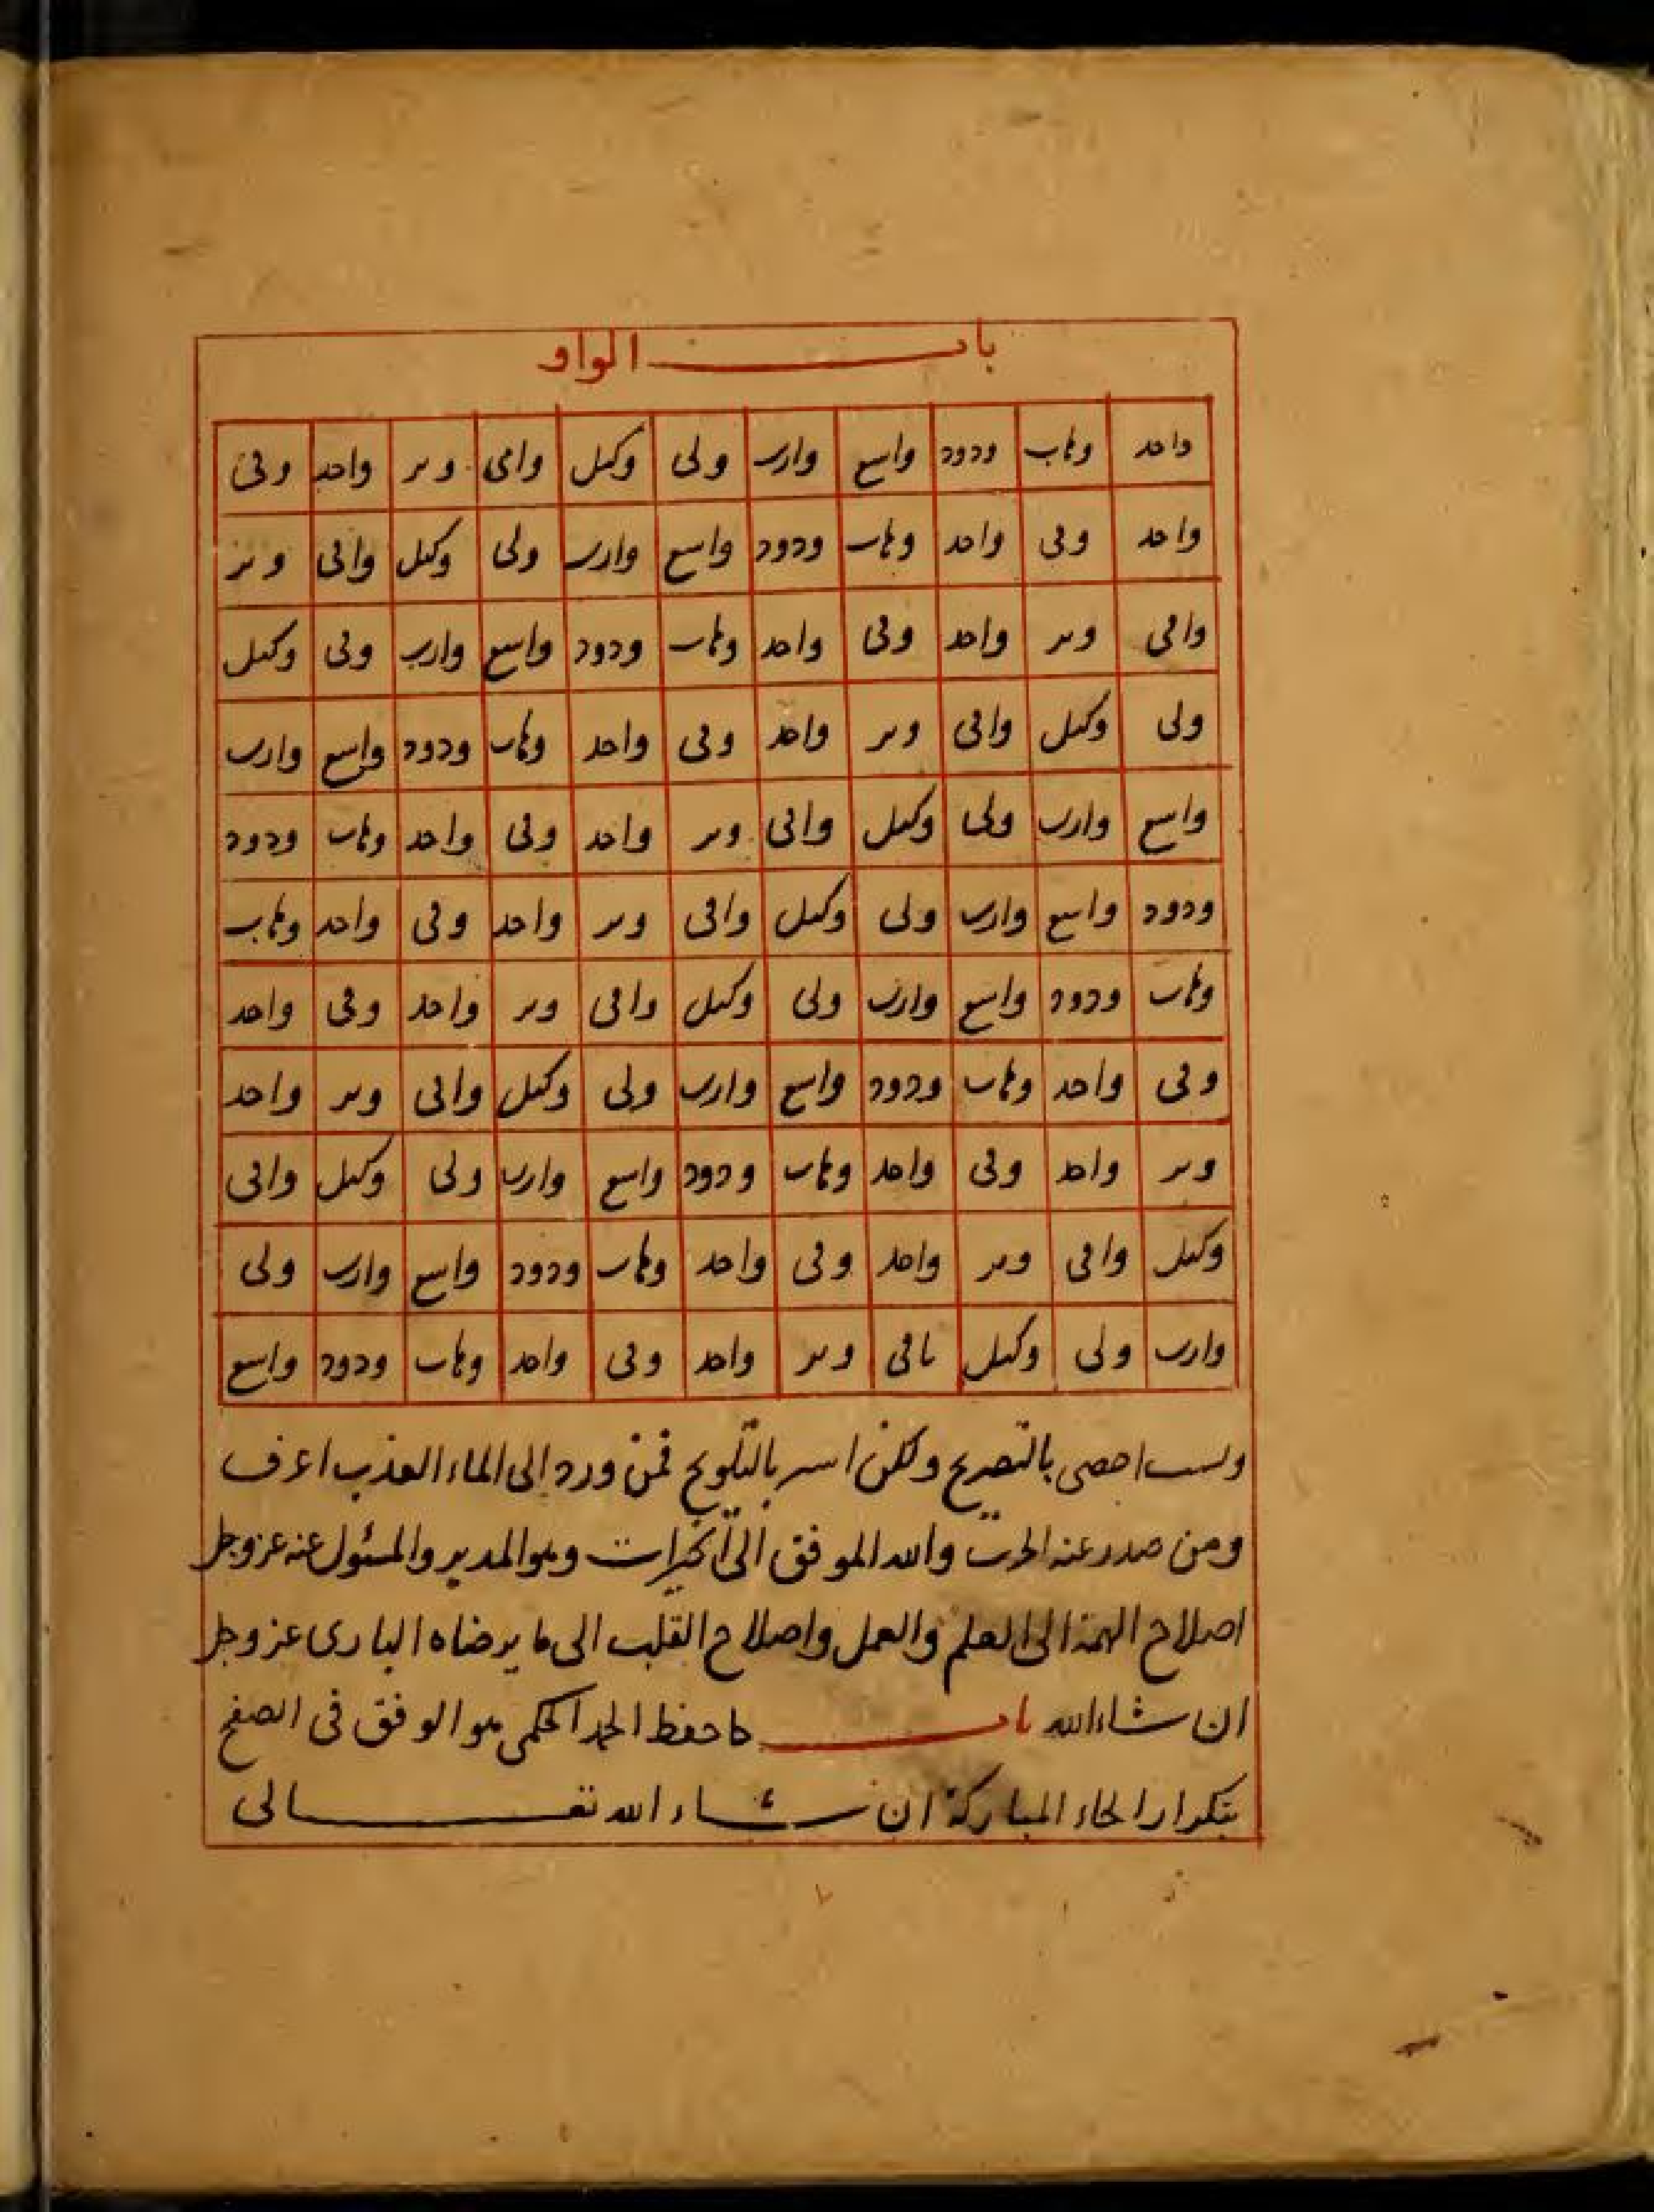 باب الواو
واحد وهاب ودود واسع وارث ولى وكيل وافى وتر واحد وفى
واحد وفى واحد وهاب ودود واسع وارث ولى وكيل وافى وتر
وافى وتر واحد وفى واحد وهاب ودود واسع وارث ولى وكيل
ولى وكيل وافى وتر واحد وفى واحد وهاب ودود واسع وارث
واسع وارث ولى وكيل وافى وتر واحد وفى واحد وهاب ودود
ودود واسع وارث ولى وكيل وافى وتر واحد وفى واحد وهاب
وهاب ودود واسع وارث ولى وكيل وافى وتر واحد وفى واحد
وفى واحد وهاب ودود واسع وارث ولى وكيل وافى وتر واحد
وتر واحد وفى واحد وهاب ودود واسع وارث ولى وكيل وافى
وكيل وافى وتر واحد وفى واحد وهاب ودود واسع وارث ولى
وارث ولى وكيل باقى وتر واحد وفى واحد وهاب ودود واسع
ولست احصى بالتصريح ولكن اسر بالتلويح فمن ورد الى الماء العذب اعرف
ومن صدر عنه والله الموفق الى الخيرات وهو المدبر والمسئول عنه عز وجل
اصلاح الهمة الى العلم والعمل واصلاح القلب الى ما يرضاه البارى عز وجل
ان شاء الله باب حفظ هو الوفق فى الصفح
بتكرار الحاء المباركة ان شاء الله تعالى